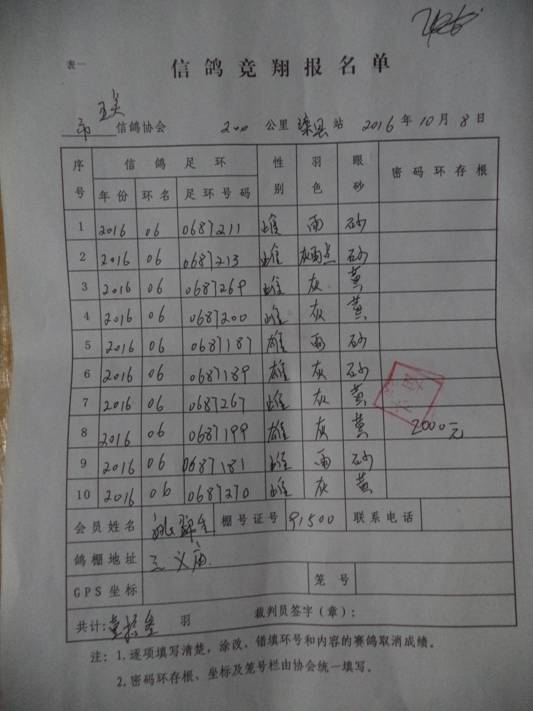 表一
信鸽竞翔报名单
市 信鸽协会 200 公里 滦县 站 2016 年 10 月 8 日
序号 信鸽足环 性别 羽色 眼砂 密码环存根
年份 环名 足环号码
1 2016 06 0687211 雌 雨 砂
2 2016 06 0687213 雌 灰雨点 砂
3 2016 06 0687269 雌 灰 黄
4 2016 06 0687200 雌 灰 黄
5 2016 06 0687187 雄 雨 砂
6 2016 06 0687189 雄 灰 砂
7 2016 06 0687267 雌 灰 黄
8 2016 06 0687199 雄 灰 黄 2000元
9 2016 06 0687181 雌 雨 砂
10 2016 06 0687270 雌 灰 黄
会员姓名 棚号证号 91500 联系电话
鸽棚地址 三义庙
GPS坐标 笼号
共计: 壹拾 羽 裁判员签字（章）：
注：1.逐项填写清楚，涂改、错填环号和内容的赛鸽取消成绩。
2.密码环存根、坐标及笼号栏由协会统一填写。